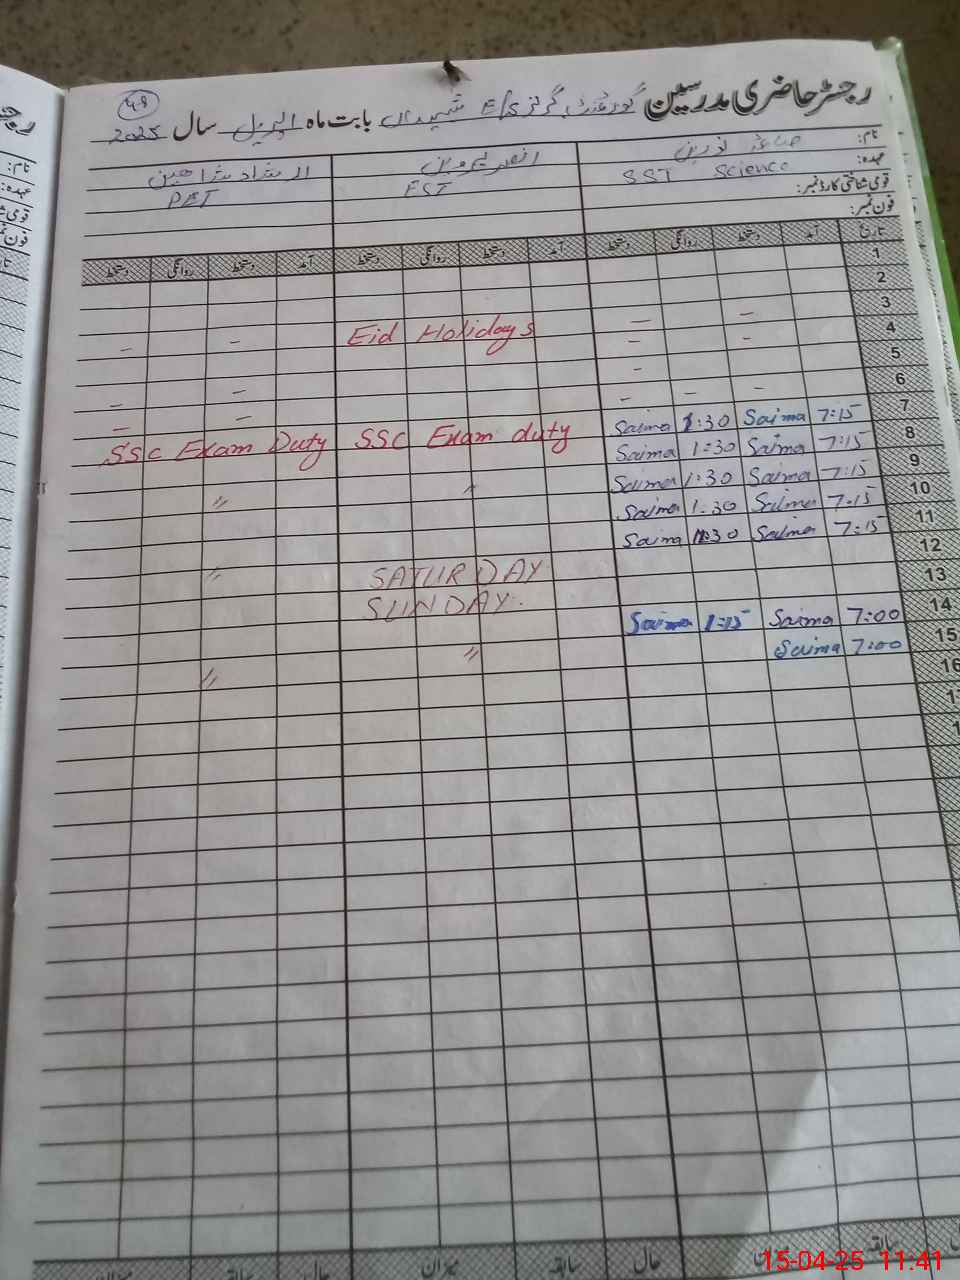 48
رجسٹر حاضری مدرسین گورنمنٹ گرلز بابت ماہ اپریل سال 2025
نام: صائمہ نورین
انصر پروین
ارشاد شاھین
عہدہ: SST Science
EST
PET
قومی شناختی کارڈ نمبر:
فون نمبر:
تاریخ آمد دستخط روانگی دستخط آمد دستخط روانگی دستخط آمد دستخط روانگی دستخط
1
2
3
4 - - Eid Holidays - -
5 - -
6 -
7 - - - - -
8 7:15 Saima 1:30 Saima SSC Exam duty SSC Exam Duty
9 7:15 Saima 1:30 Saima
10 7:15 Saima 1:30 Saima " "
11 7:15 Saima 1:30 Saima
12 7:15 Saima 1:30 Saima
13 SATURDAY "
14 SUNDAY
15 7:00 Saima 1:15 Saima
16 7:00 Saima " "
1
1
سابقہ حال میزان سابقہ حال
15-04-25 11:41
رجـ
نام:
عہدہ:
قومی ش
فون نم
تا